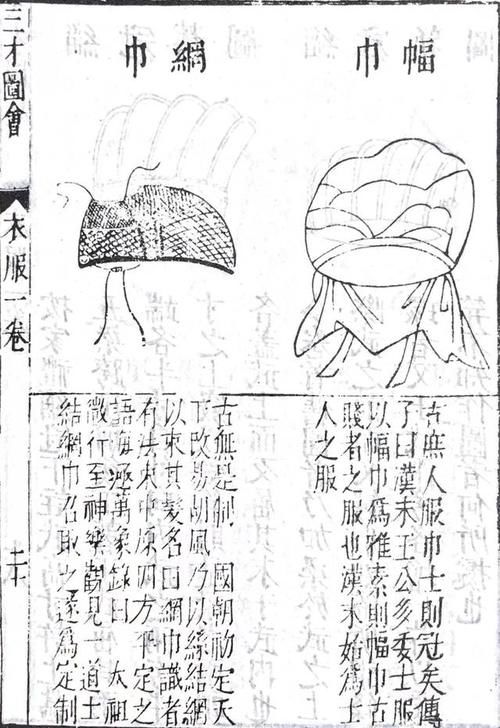 三才圖會
衣服一卷
二十
幅巾
古庶人服巾士則冠矣傳
子曰漢末王公多委士服
以幅巾爲雅素則幅巾古
賤者之服也漢末始爲士
人之服
網巾
古無是制 國朝初定天
下改易胡風乃以絲結網
以束其髮名曰網巾識者
有法束中原四方平定之
語海涵萬象錄曰 太祖
微行至神樂觀見一道士
結網巾召取之遂爲定制